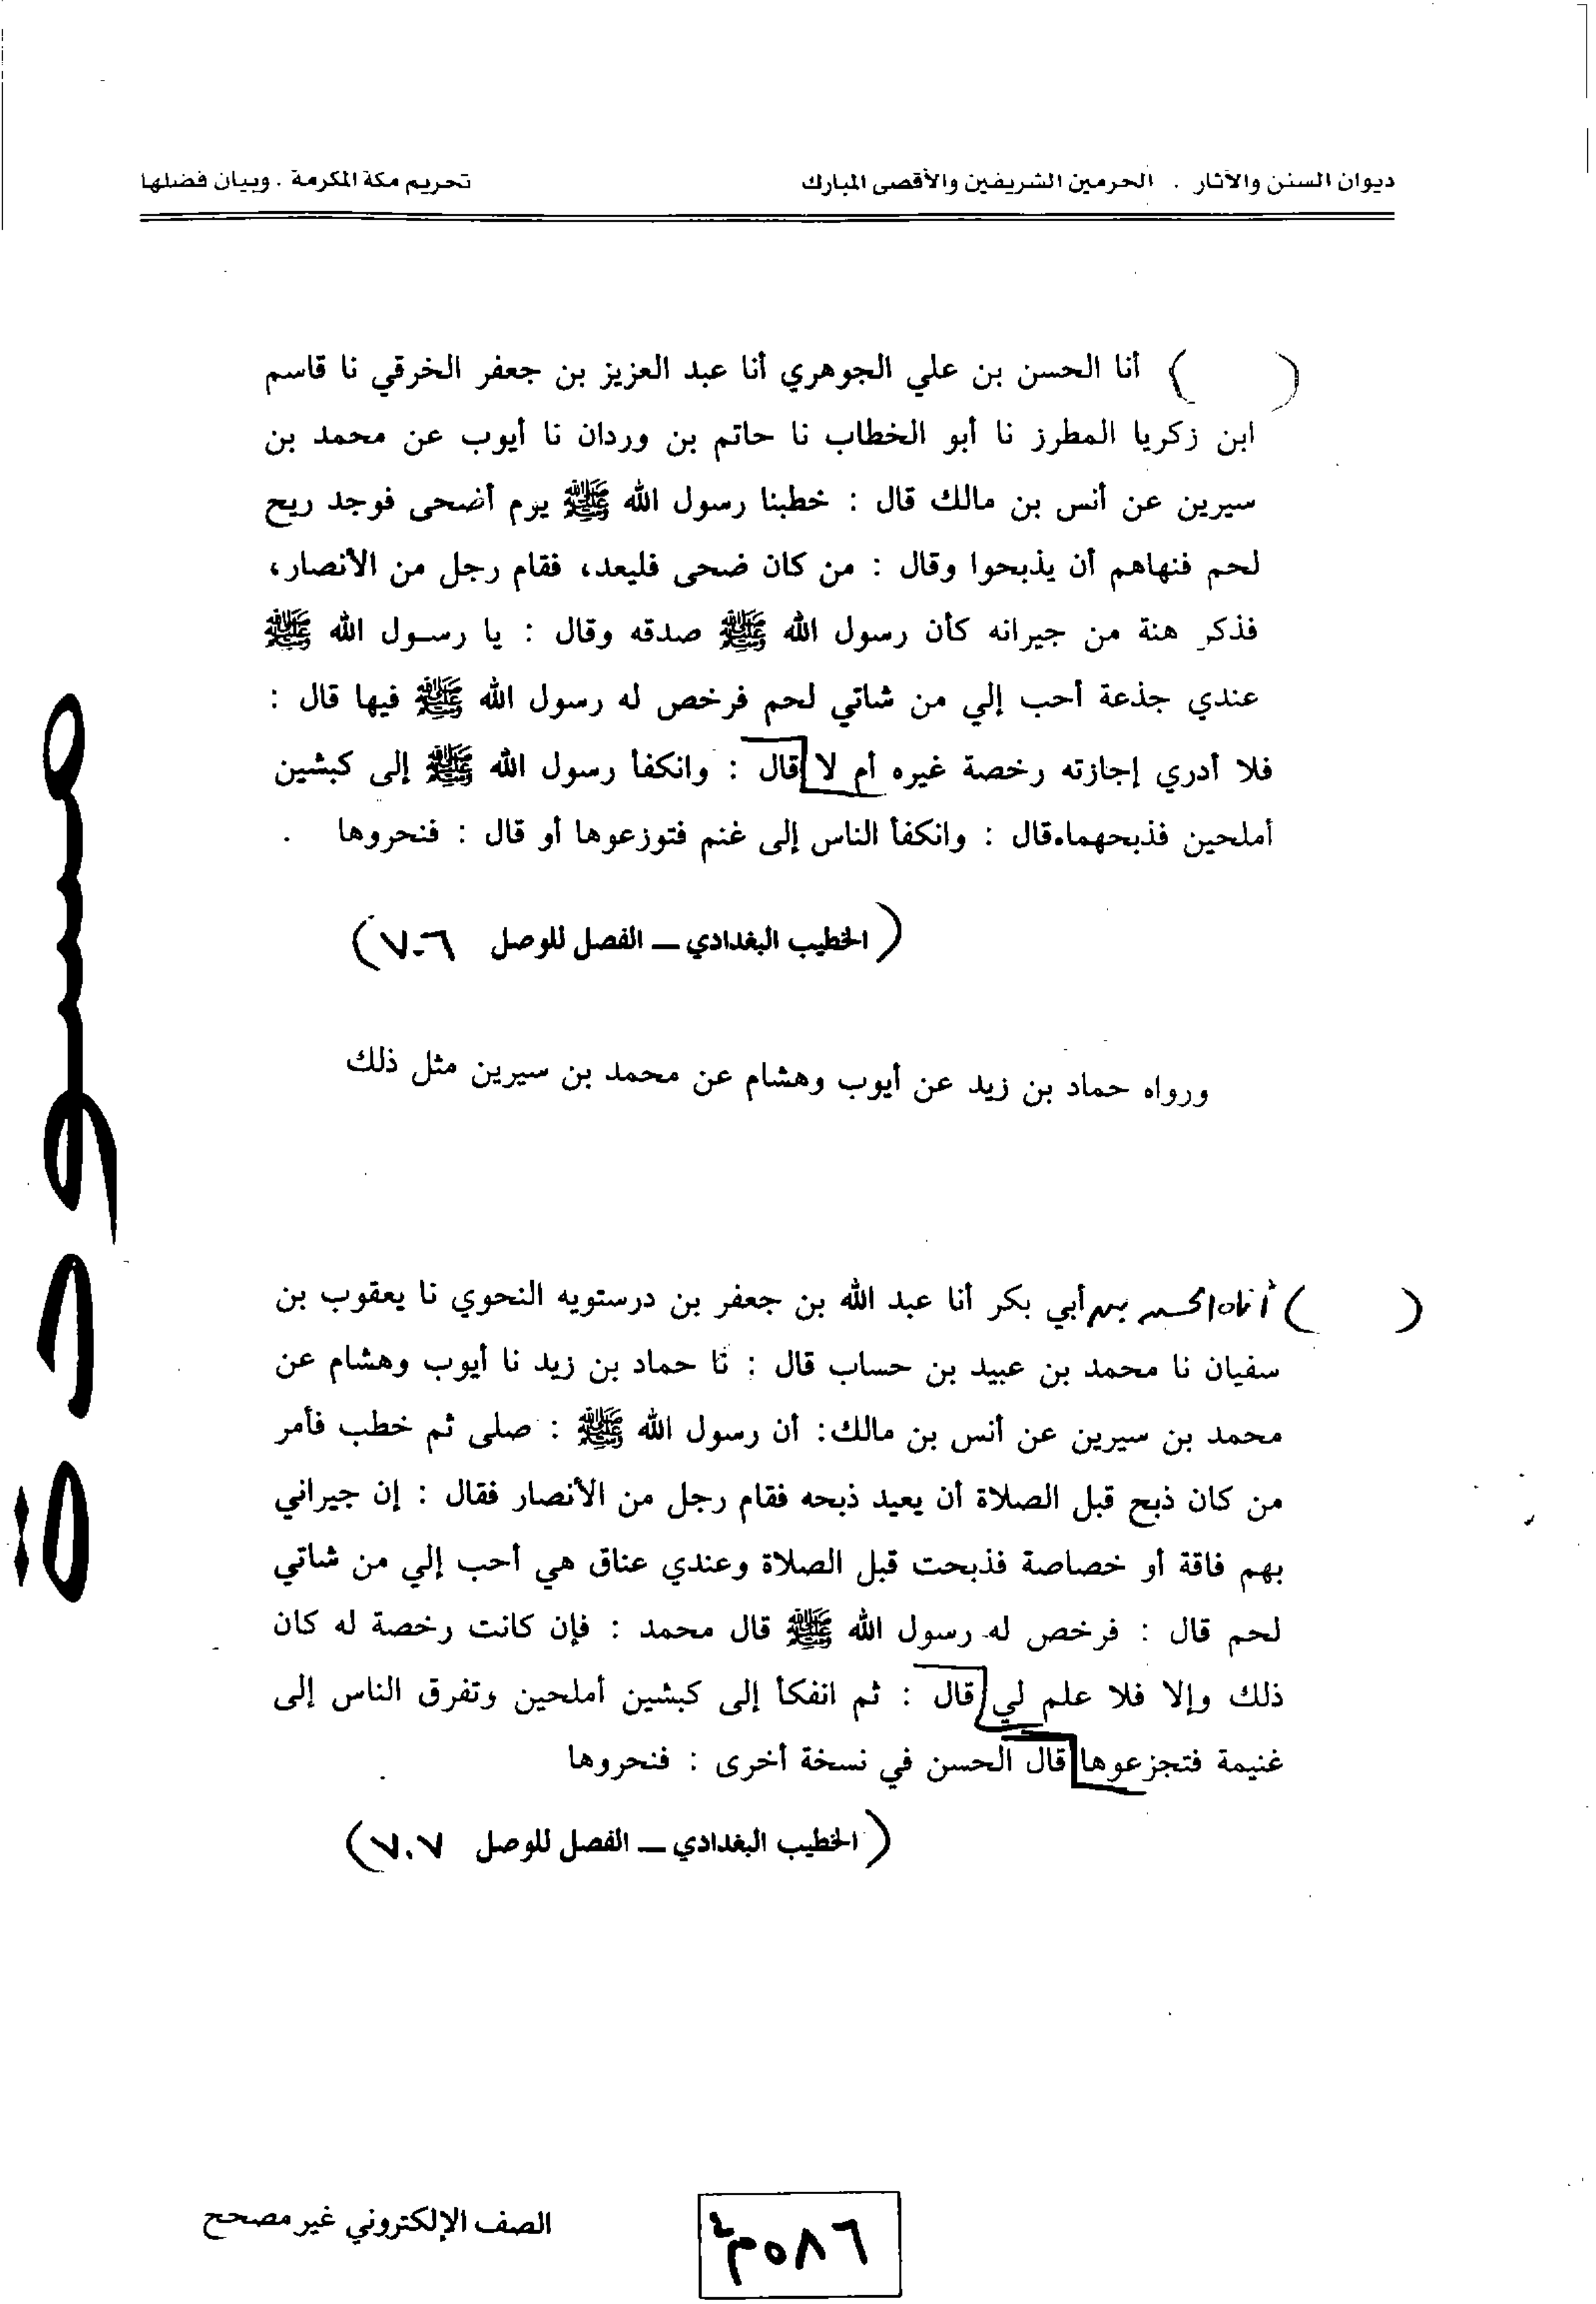 ديوان السنن والآثار . الحرمين الشريفين والأقصى المبارك
تحريم مكة المكرمة . وبيان فضلها
( ) أنا الحسن بن علي الجوهري أنا عبد العزيز بن جعفر الخرقي نا قاسم
ابن زكريا المطرز نا أبو الخطاب نا حاتم بن وردان نا أيوب عن محمد بن
سيرين عن أنس بن مالك قال : خطبنا رسول الله ﷺ يرم أضحى فوجد ريح
لحم فنهاهم أن يذبحوا وقال : من كان ضحى فليعد، فقام رجل من الأنصار،
فذكر هنة من جيرانه كأن رسول الله ﷺ صدقه وقال : يا رسول الله ﷺ
عندي جذعة أحب إلي من شاتي لحم فرخص له رسول الله ﷺ فيها قال :
فلا أدري إجازته رخصة غيره أم لا قال : وانكفأ رسول الله ﷺ إلى كبشين
أملحين فذبحهما.قال : وانكفأ الناس إلى غنم فتوزعوها أو قال : فنحروها .
(الخطيب البغدادي – الفصل للوصل ٧٠٦)
ورواه حماد بن زيد عن أيوب وهشام عن محمد بن سيرين مثل ذلك
( ) أناه الحسن بن أبي بكر أنا عبد الله بن جعفر بن درستويه النحوي نا يعقوب بن
سفيان نا محمد بن عبيد بن حساب قال : نا حماد بن زيد نا أيوب وهشام عن
محمد بن سيرين عن أنس بن مالك: أن رسول الله ﷺ : صلى ثم خطب فأمر
من كان ذبح قبل الصلاة أن يعيد ذبحه فقام رجل من الأنصار فقال : إن جيراني
بهم فاقة أو خصاصة فذبحت قبل الصلاة وعندي عناق هي أحب إلي من شاتي
لحم قال : فرخص له رسول الله ﷺ قال محمد : فإن كانت رخصة له كان
ذلك وإلا فلا علم لي قال : ثم انفكأ إلى كبشين أملحين وتفرق الناس إلى
غنيمة فتجزعوها قال الحسن في نسخة أخرى : فنحروها
(الخطيب البغدادي – الفصل للوصل ٧٠٧)
مسودة
٥٨٦م٤
الصف الإلكتروني غير مصحح